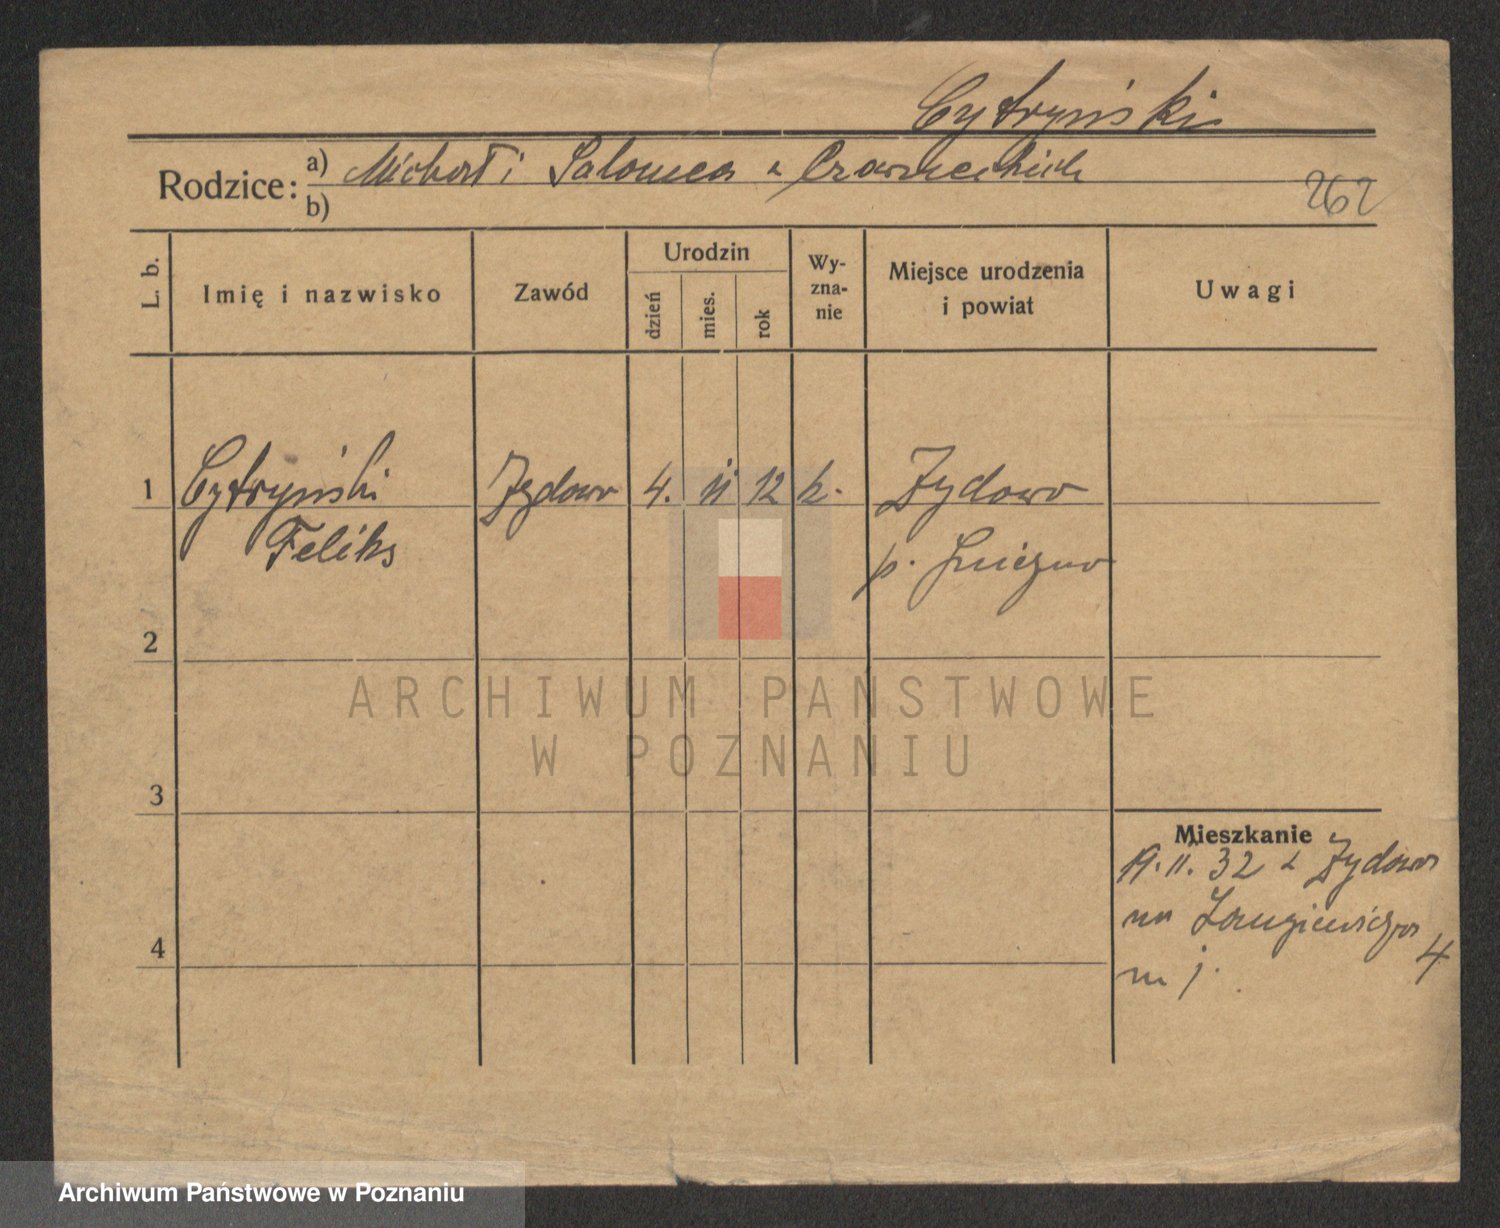 Cytryński
Rodzice: a) Michał i Salomea z Czarneckich
b)
262
L. b.
Imię i nazwisko
Zawód
Urodzin
dzień
mies.
rok
Wy-
zna-
nie
Miejsce urodzenia
i powiat
Uwagi
1 Cytryński Żydowo 4. 11 12 k. Żydowo
Feliks p. Gniezno
2
3
4
Mieszkanie
19. 11. 32 z Żydowo
na
4
m j.
ARCHIWUM PAŃSTWOWE
W POZNANIU
Archiwum Państwowe w Poznaniu